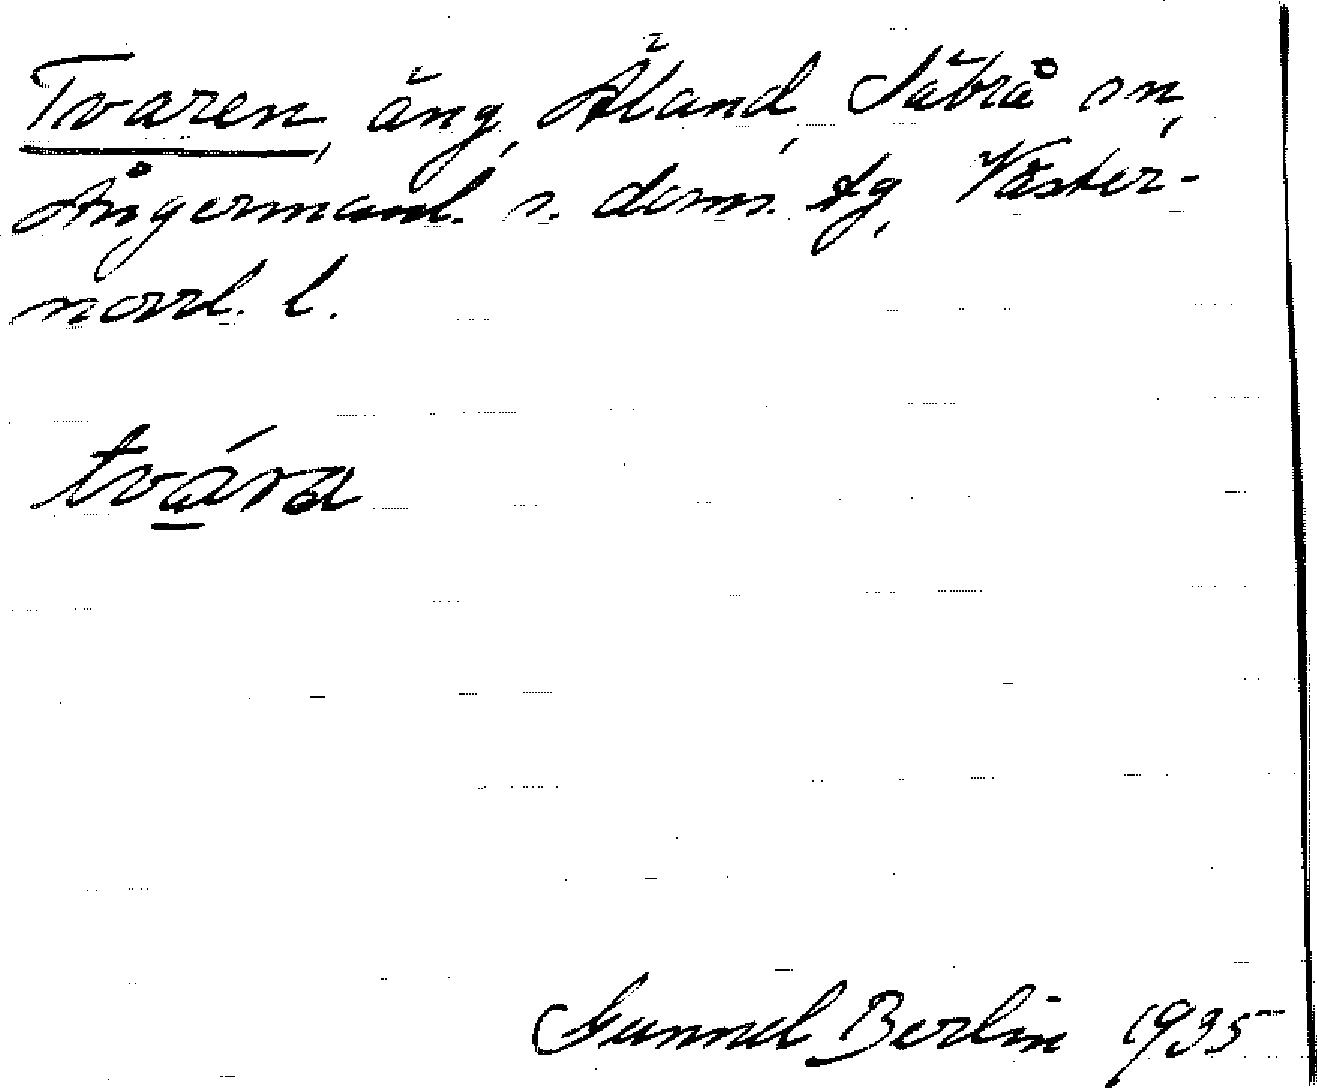 Tvaren, äng, Äland, Säbrå sn,
Ångermanl. s. doms. tg, Väster-
norrl. l.
tvára
Gunnel Berlin 1935